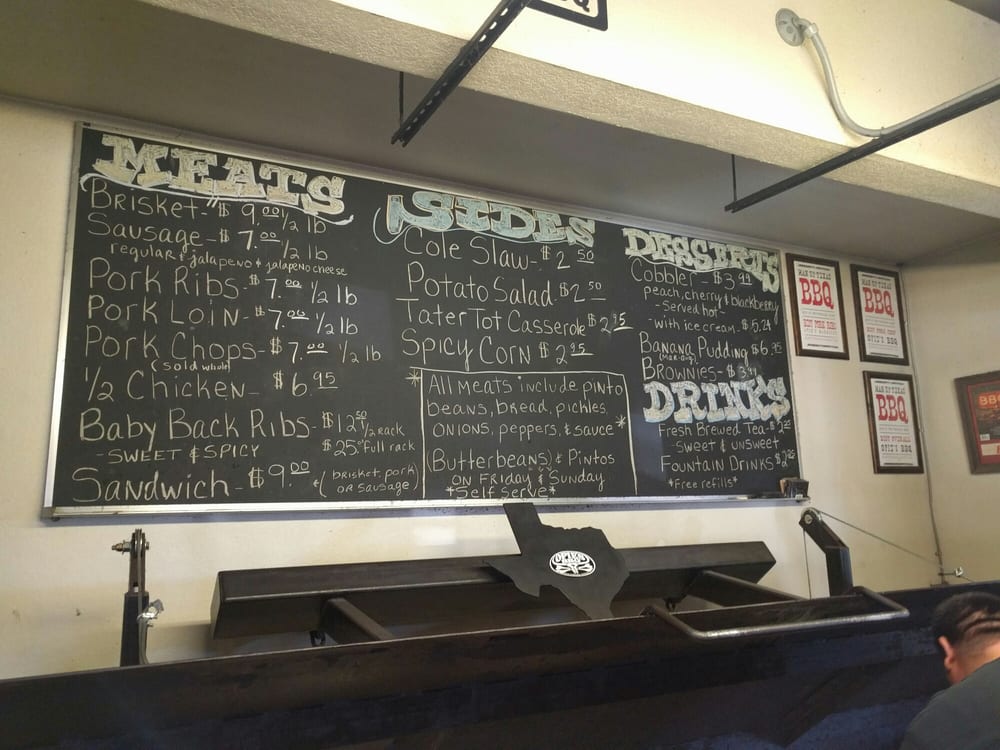 MEATS
Brisket- $9.00 1/2 lb
Sausage- $7.00 1/2 lb
regular & jalapeno & jalapeno cheese
Pork Ribs- $7.00 1/2 lb
Pork Loin- $7.00 1/2 lb
Pork Chops- $7.00 1/2 lb
(sold whole)
1/2 Chicken- $6.95
Baby Back Ribs- $12.50 1/2 rack
- SWEET & SPICY $25.00 Full rack
Sandwich- $9.00 *(brisket, pork,
OR SAUSAGE)
SIDES
Cole Slaw- $2.50
Potato Salad- $2.50
Tater Tot Casserole $2.95
Spicy Corn $2.95
*All Meats include pinto
beans, bread, pickles,
onions, peppers, & sauce*
(Butterbeans) & Pintos
on Friday & Sunday
*Self Serve*
DESSERTS
Cobbler- $3.99
peach, cherry & blackberry
- served hot -
- with ice cream- $5.24
Banana Pudding $6.95
Brownies-
DRINKS
Fresh Brewed Tea-
Sweet & unsweet
Fountain Drinks
*Free refills*
MAN UP TEXAS
BBQ
MAN UP TEXAS
BBQ
MAN UP TEXAS
BBQ